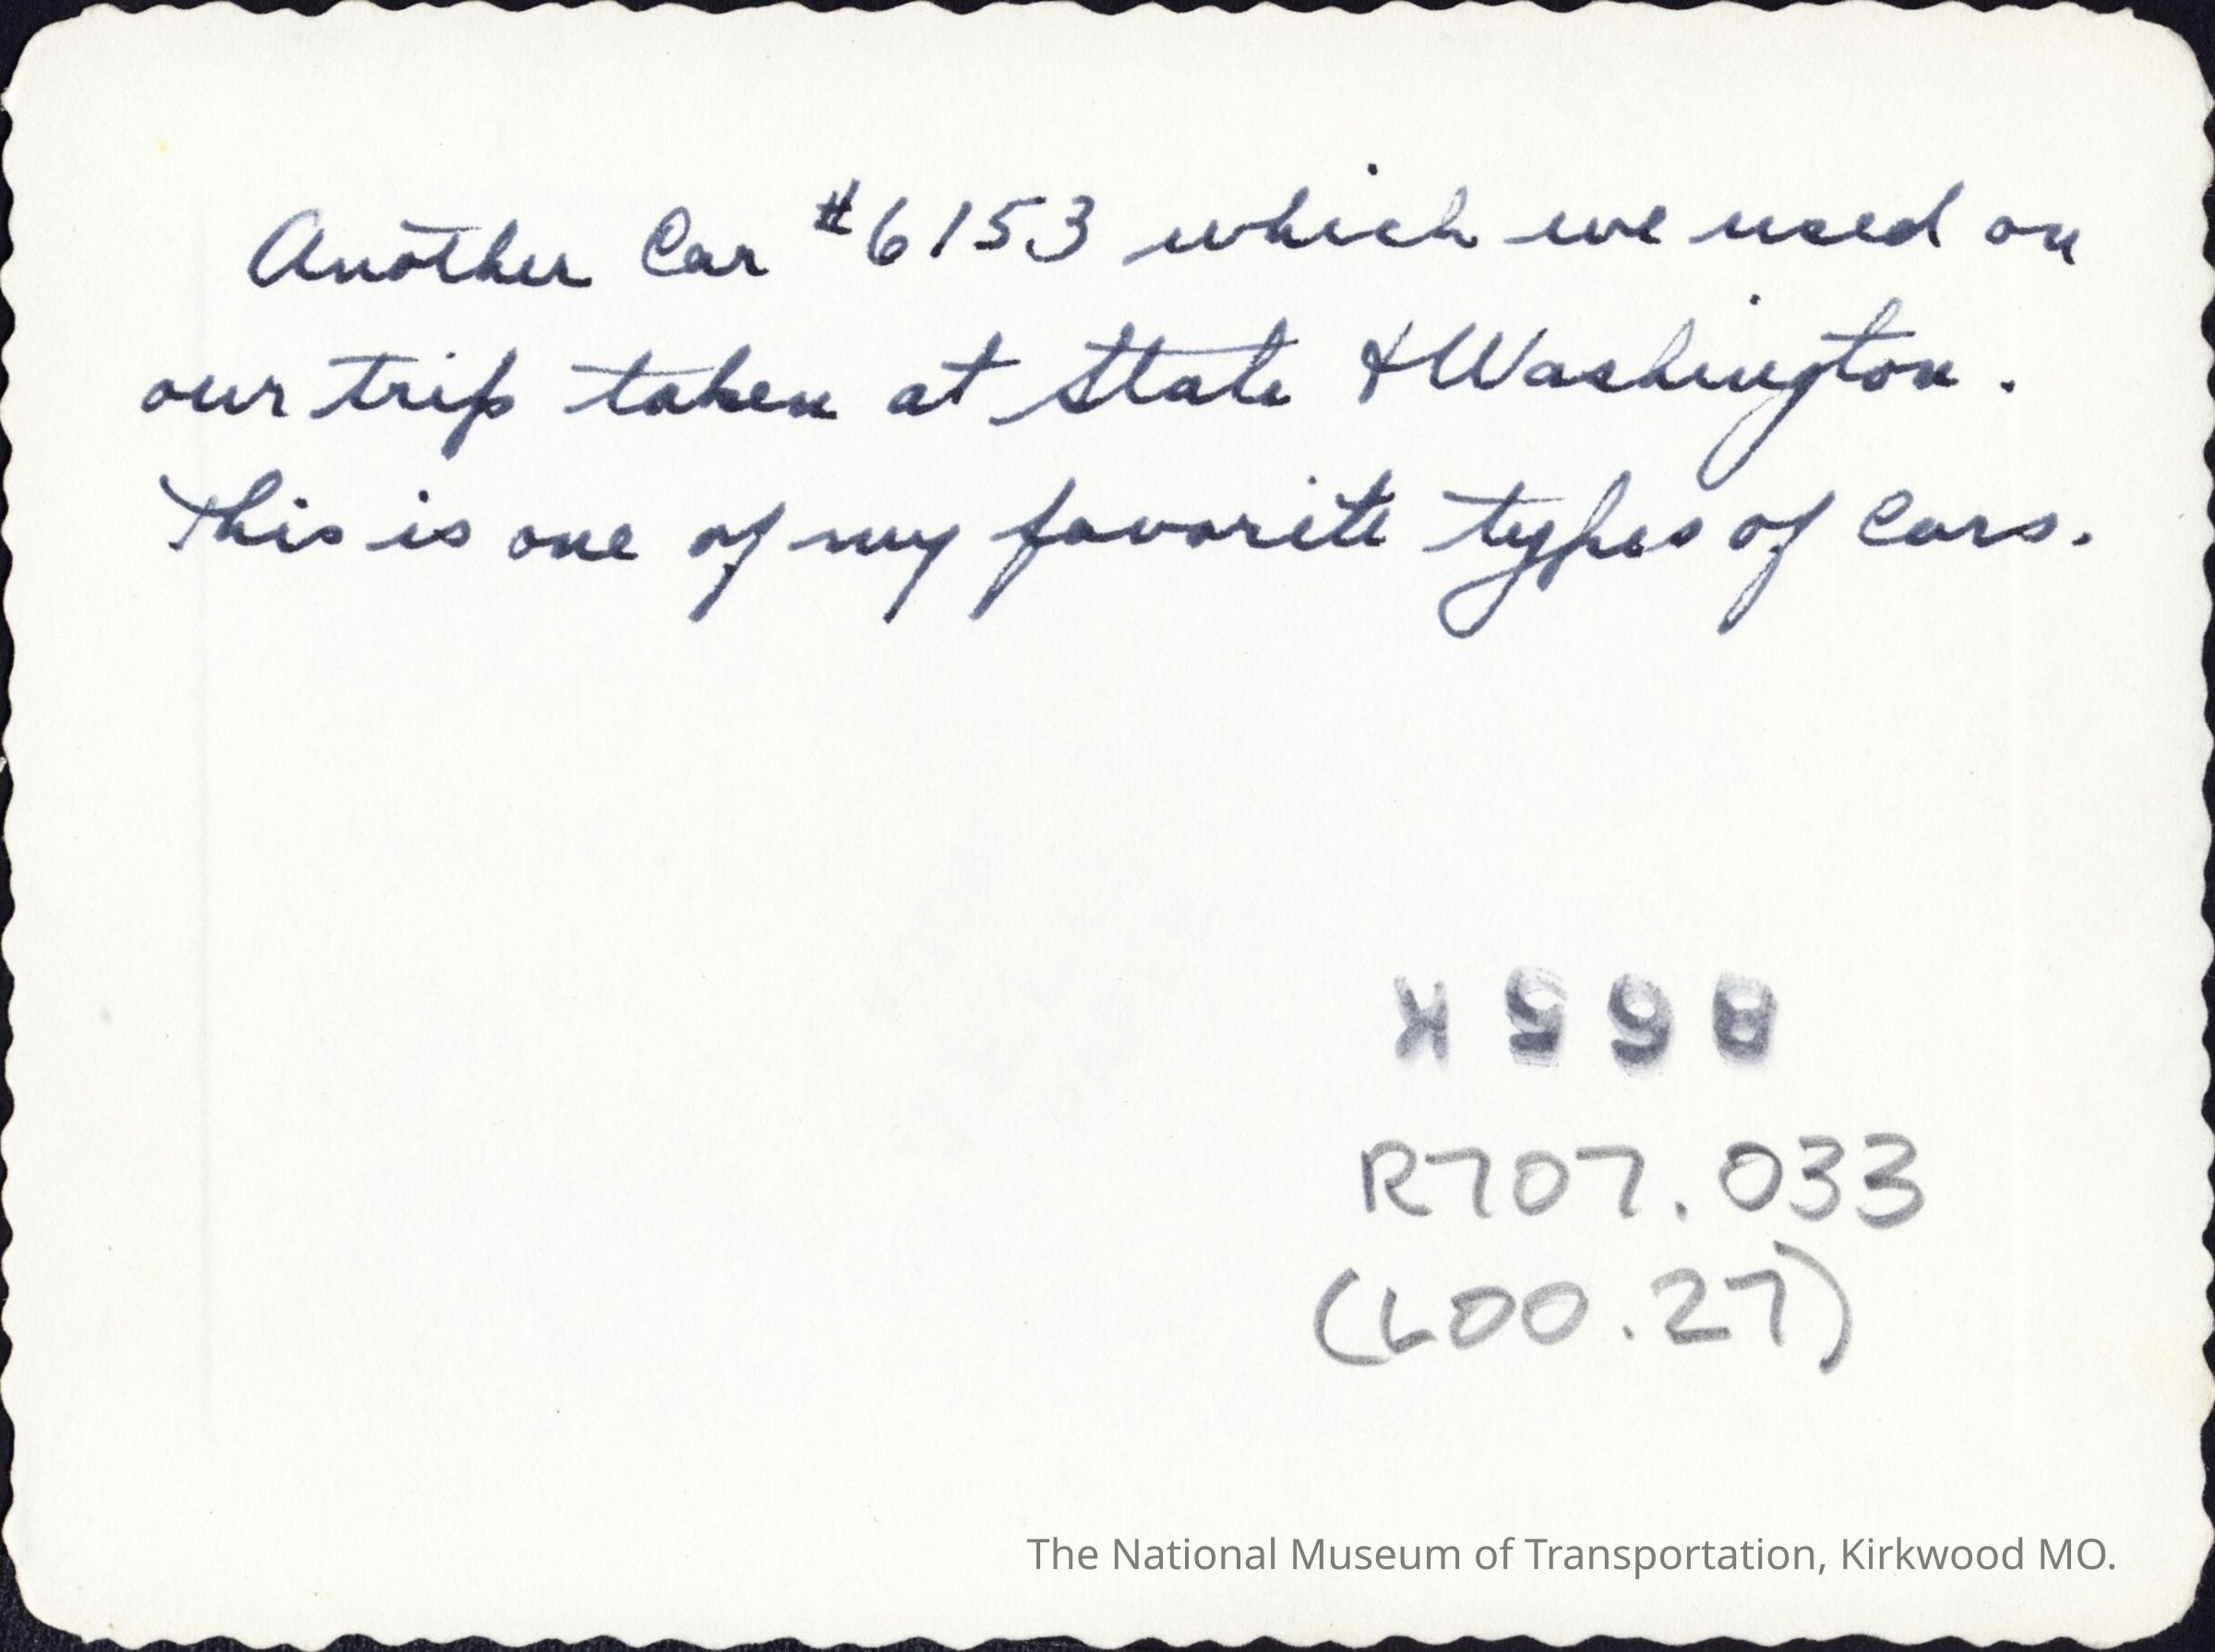 Another Car #6153 which we used on
our trip taken at State & Washington.
This is one of my favorite types of Cars.
R707.033
(L00.27)
The National Museum of Transportation, Kirkwood MO.